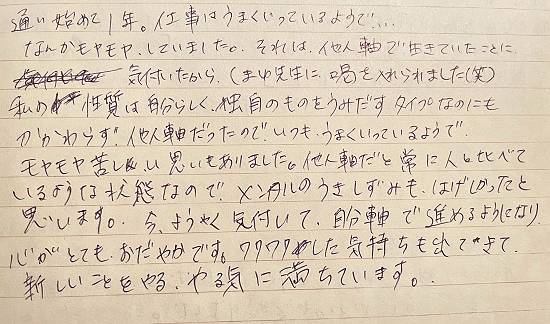 通い始めて1年。仕事はうまくいっているようで…
なんかモヤモヤ、していました。それは、他人軸で生きていたことに
気付いたから。(まゆ先生に、喝を入れられました(笑)
私の 性質は自分らしく、独自のものをうみだすタイプなのにも
かかわらず、他人軸だったのでいつも、うまくいっているようで、
モヤモヤ苦しい思いもありました。他人軸だと常に人と比べて
いるような状態なので、メンタルのうきしずみも、はげしかったと
思います。今、ようやく気付いて、自分軸で進めるようになり、
心がとても、おだやかです。ワクワクした気持ちも出てきて、
新しいことをやる、やる気に満ちています。